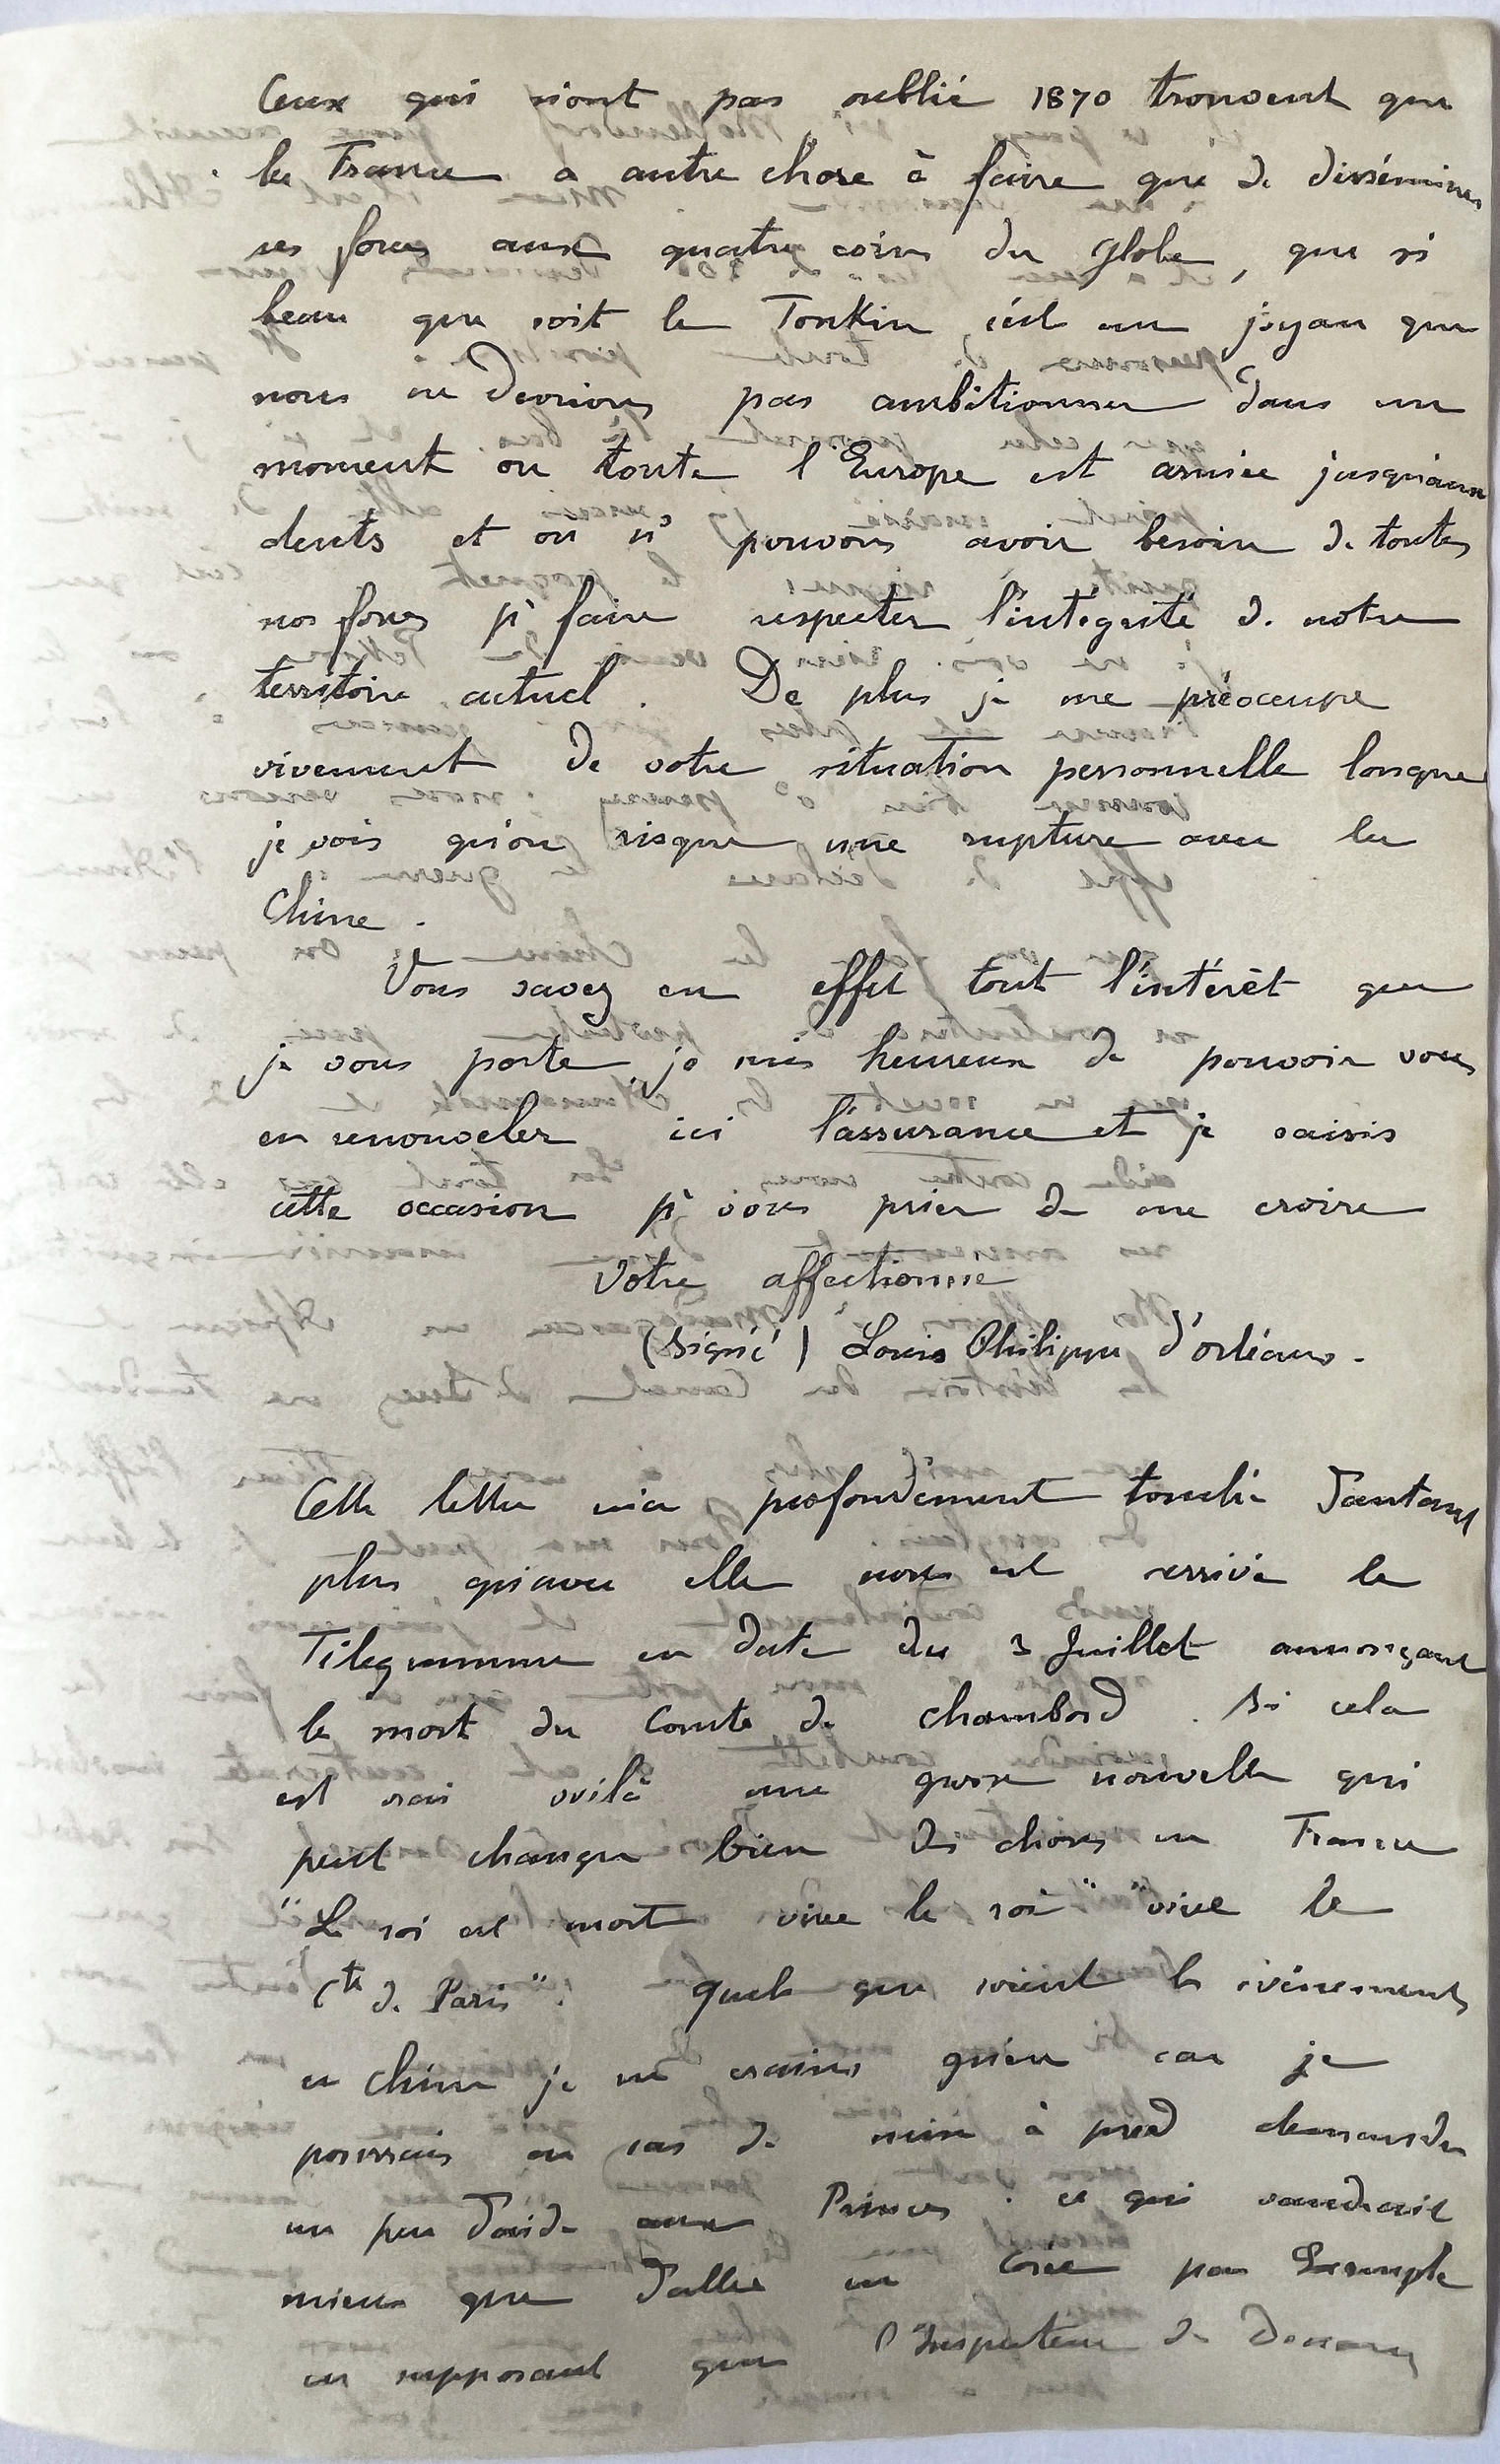 Ceux qui n'ont pas oublié 1870 trouvent que
la France a autre chose à faire que de disséminer
ses forces aux quatre coins du globe, que si
beau que soit le Tonkin c'est un joyau que
nous ne devrions pas ambitionner dans un
moment ou toute l'Europe est armée jusqu'aux
dents et ou ns pouvons avoir besoin de toutes
nos forces pr faire respecter l'intégrité de notre
territoire actuel. De plus je me préocupe
vivement de votre situation personnelle lorsque
je vois qu'on risque une rupture avec la
Chine.
Vous savez en effet tout l'intérêt que
je vous porte je suis heureux de pouvoir vous
en renouveler ici l'assurance et je saisis
cette occasion pr vous prier de me croire
Votre affectionné
(Signé) Louis Philippe d'Orléans.
Cette lettre m'a profondément touché d'autant
plus qu'avec elle nous est arrivé le
Télégramme en date du 3 Juillet annonçant
la mort du Comte de Chambord. Si cela
est vrai voilà une grosse nouvelle qui
peut changer bien des choses en France
"Le roi est mort vive le roi" "vive le
Cte de Paris". Quels que soient les événements
en Chine je ne crains guère car je
pourrais en cas de mise à pied demander
un peu d'aide aux Princes. ce qui vaudrait
mieux que d'aller en Corée par Exemple
en supposant que l'Inspecteur de Douanes